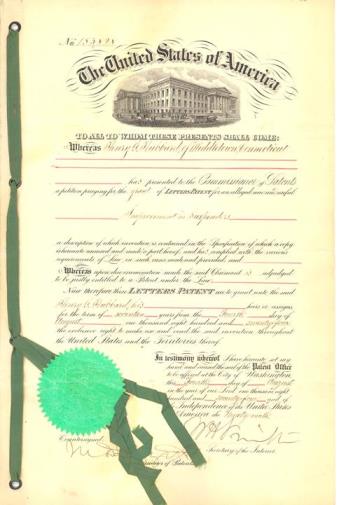 No. 153,828
The United States of America
TO ALL TO WHOM THESE PRESENTS SHALL COME:
Whereas Henry G. Hubbard, of Middletown, Connecticut
has presented to the Commissioner of Patents
a petition praying for the grant of LETTERS PATENT for an alleged new and useful
Improvement in
a description of which invention is contained in the Specification of which a copy
is hereunto annexed and made a part hereof, and has complied with the various
requirements of Law in such cases made and provided, and
Whereas upon due examination made the said Claimant is adjudged
to be justly entitled to a Patent under the Law.
Now therefore these LETTERS PATENT are to grant unto the said
Henry G. Hubbard, his heirs or assigns
for the term of seventeen years from the Fourth day of
August one thousand eight hundred and seventy-four
the exclusive right to make use and vend the said invention throughout
the United States and the Territories thereof.
In testimony whereof I have hereunto set my
hand and caused the seal of the Patent Office
to be affixed at the City of Washington
this Fourth day of August
in the year of our Lord one thousand eight
hundred and seventy-four and of
Independence of the United States
of America the Ninety-ninth.
Countersigned
Secretary of the Interior.
Commissioner of Patents.